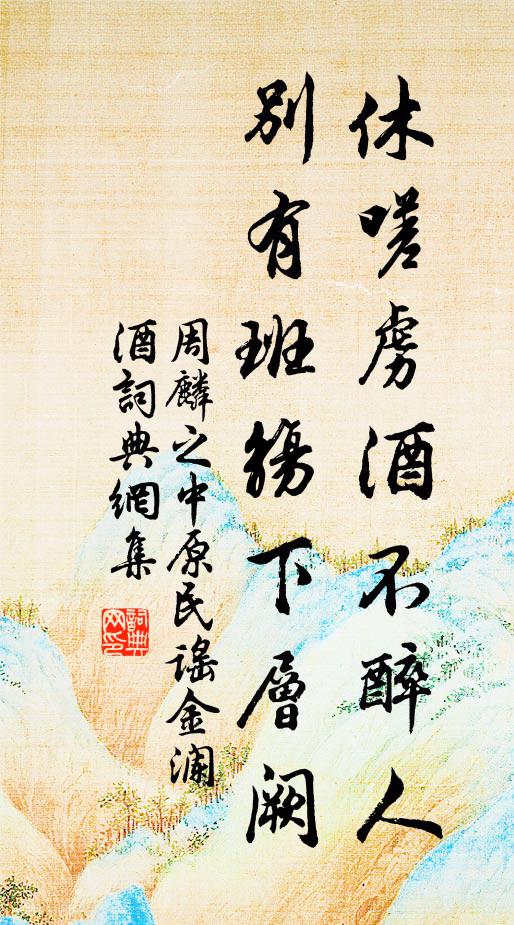 休嗟虏酒不醉人
別有班觴下層闕
周麟之中原民謠金澜
酒詞典網集
詞典